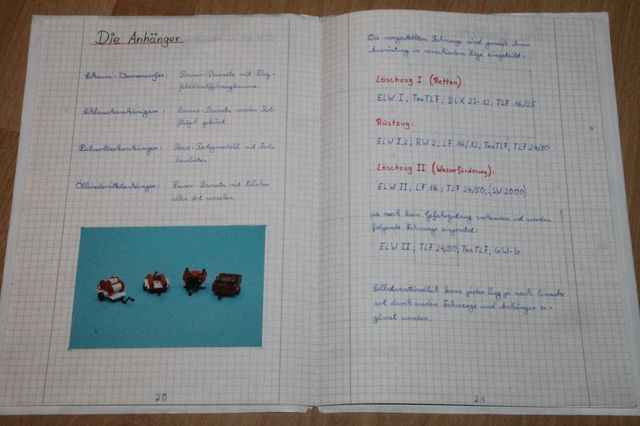 Die Anhänger
Schaum-Wasserwerfer: Preiser-Bausatz mit Flug-
feldlöschfahrzeug
Schlauchanhänger: Preiser-Bausatz wurden
gekürzt
Pulverlöschanhänger: Roco-Fertigmodell mit Farbe
bearbeitet
Ölbindemittelanhänger: Preiser-Bausatz mit
aller Art versehen.
20
Die vorgestellten Fahrzeuge sind gemäß ihrer
Ausrüstung in verschiedene Züge eingeteilt:
Löschzug I (Retten):
ELW I; TroTLF; DLK 23-12; TLF 16/25
Rüstzug:
ELW I,2; RW 2; LF 16/12; TroTLF; TLF 24/50
Löschzug II (Wasserförderung):
ELW II; LF 16; TLF 24/50; (SW 2000)
Da noch kein Gefahrgutzug vorhanden ist werden
folgende Fahrzeuge eingesetzt:
ELW II; TLF 24/50; TroTLF; GW-G
Selbstverständlich kann jeder Zug je nach Einsatz-
art durch andere Fahrzeuge und Anhänger er-
gänzt werden.
21